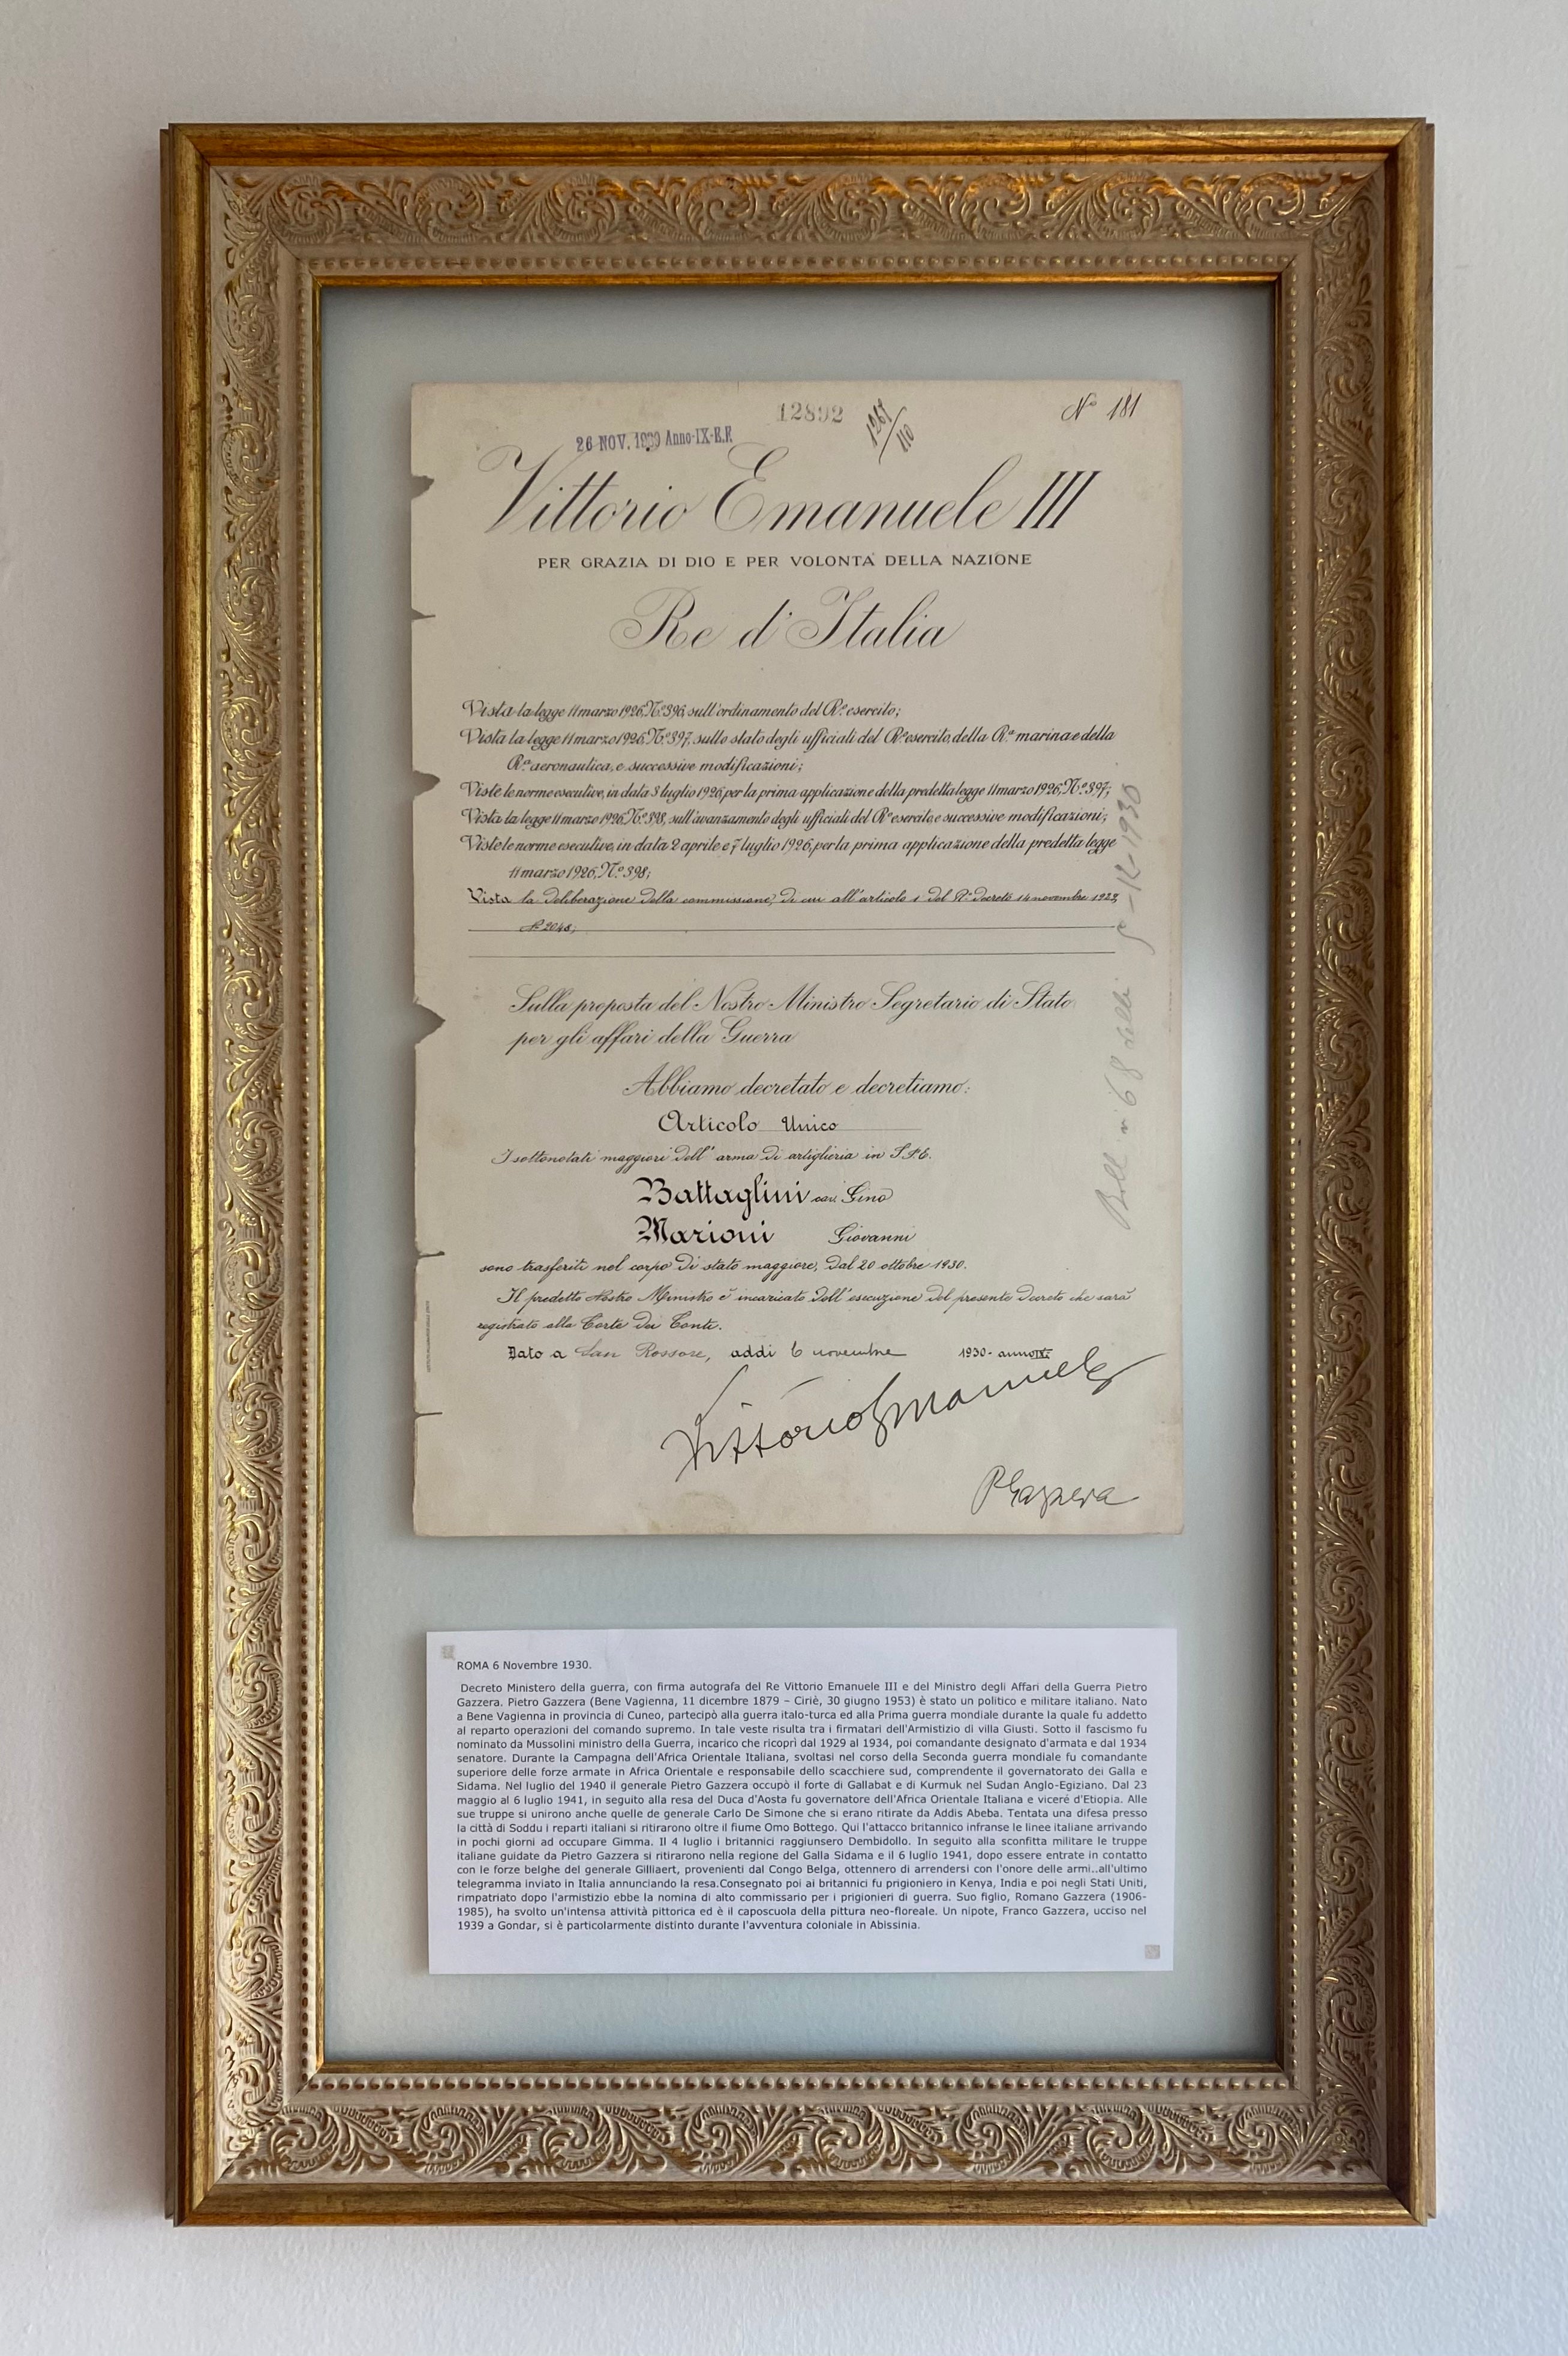 12892
Nº 181
26 NOV. 1930 Anno-IX-E.F.
Vittorio Emanuele III
PER GRAZIA DI DIO E PER VOLONTÀ DELLA NAZIONE
Re d'Italia
Vista la legge 11 marzo 1926, Nº 396, sull'ordinamento del Rº esercito;
Vista la legge 11 marzo 1926, Nº 397, sullo stato degli ufficiali del Rº esercito, della Rª marina e della
Rª aeronautica, e successive modificazioni;
Viste le norme esecutive, in data 3 luglio 1926, per la prima applicazione della predetta legge 11 marzo 1926, Nº 397;
Vista la legge 11 marzo 1926, Nº 398, sull'avanzamento degli ufficiali del Rº esercito e successive modificazioni;
Viste le norme esecutive, in data 2 aprile e 7 luglio 1926, per la prima applicazione della predetta legge
11 marzo 1926, Nº 398;
Vista la deliberazione della commissione, di cui all'articolo 1 del Rº decreto 14 novembre 1929,
Nº 2048;
Sulla proposta del Nostro Ministro Segretario di Stato
per gli affari della Guerra
Abbiamo decretato e decretiamo:
Articolo Unico
I sottonotati maggiori dell'arma di artiglieria in S.P.E.
Battaglini cav. Gino
Marioni Giovanni
sono trasferiti nel corpo di stato maggiore, dal 20 ottobre 1930.
Il predetto Nostro Ministro è incaricato dell'esecuzione del presente decreto che sarà
registrato alla Corte dei Conti.
Dato a San Rossore, addì 6 novembre 1930 - anno IX.
Vittorio Emanuele
P Gazzera
5-12-1930
ROMA 6 Novembre 1930.
Decreto Ministero della guerra, con firma autografa del Re Vittorio Emanuele III e del Ministro degli Affari della Guerra Pietro
Gazzera. Pietro Gazzera (Bene Vagienna, 11 dicembre 1879 – Ciriè, 30 giugno 1953) è stato un politico e militare italiano. Nato
a Bene Vagienna in provincia di Cuneo, partecipò alla guerra italo-turca ed alla Prima guerra mondiale durante la quale fu addetto
al reparto operazioni del comando supremo. In tale veste risulta tra i firmatari dell'Armistizio di villa Giusti. Sotto il fascismo fu
nominato da Mussolini ministro della Guerra, incarico che ricoprì dal 1929 al 1934, poi comandante designato d'armata e dal 1934
senatore. Durante la Campagna dell'Africa Orientale Italiana, svoltasi nel corso della Seconda guerra mondiale fu comandante
superiore delle forze armate in Africa Orientale e responsabile dello scacchiere sud, comprendente il governatorato dei Galla e
Sidama. Nel luglio del 1940 il generale Pietro Gazzera occupò il forte di Gallabat e di Kurmuk nel Sudan Anglo-Egiziano. Dal 23
maggio al 6 luglio 1941, in seguito alla resa del Duca d'Aosta fu governatore dell'Africa Orientale Italiana e viceré d'Etiopia. Alle
sue truppe si unirono anche quelle de generale Carlo De Simone che si erano ritirate da Addis Abeba. Tentata una difesa presso
la città di Soddu i reparti italiani si ritirarono oltre il fiume Omo Bottego. Qui l'attacco britannico infranse le linee italiane arrivando
in pochi giorni ad occupare Gimma. Il 4 luglio i britannici raggiunsero Dembidollo. In seguito alla sconfitta militare le truppe
italiane guidate da Pietro Gazzera si ritirarono nella regione del Galla Sidama e il 6 luglio 1941, dopo essere entrate in contatto
con le forze belghe del generale Gilliaert, provenienti dal Congo Belga, ottennero di arrendersi con l'onore delle armi..all'ultimo
telegramma inviato in Italia annunciando la resa.Consegnato poi ai britannici fu prigioniero in Kenya, India e poi negli Stati Uniti,
rimpatriato dopo l'armistizio ebbe la nomina di alto commissario per i prigionieri di guerra. Suo figlio, Romano Gazzera (1906-
1985), ha svolto un'intensa attività pittorica ed è il caposcuola della pittura neo-floreale. Un nipote, Franco Gazzera, ucciso nel
1939 a Gondar, si è particolarmente distinto durante l'avventura coloniale in Abissinia.